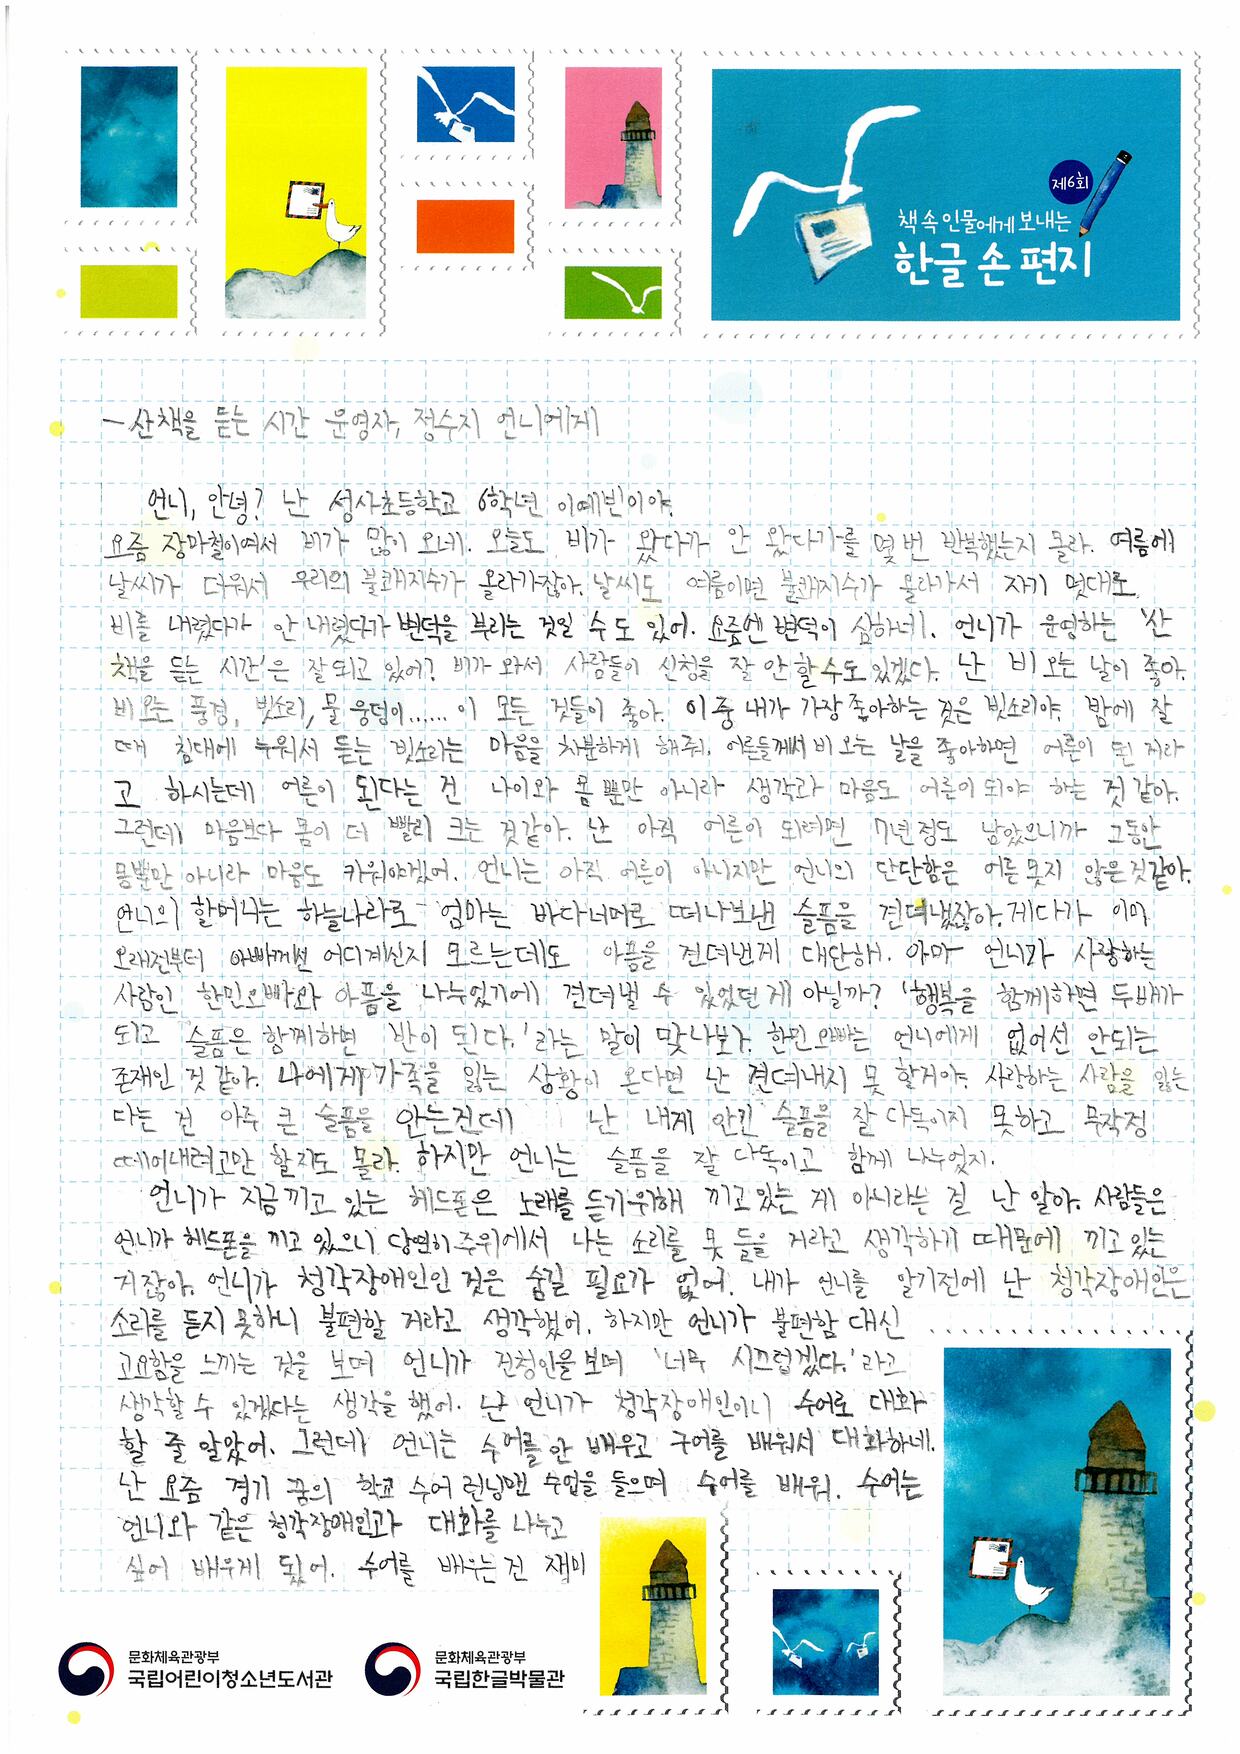 제6회
책 속 인물에게 보내는
한글 손 편지
- 산책을 듣는 시간 운영자, 정수지 언니에게
언니, 안녕? 난 성사초등학교 6학년 이예빈이야.
요즘 장마철이여서 비가 많이 오네. 오늘도 비가 왔다가 안 왔다가를 몇 번 반복했는지 몰라. 여름에
날씨가 더워서 우리의 불쾌지수가 올라가잖아. 날씨도 여름이면 불쾌지수가 올라가서 자기 멋대로
비를 내렸다가 안 내렸다가 변덕을 부리는 것일 수도 있어. 요즘엔 변덕이 심하네. 언니가 운영하는 '산
책을 듣는 시간'은 잘 되고 있어? 비가 와서 사람들이 신청을 잘 안 할 수도 있겠다. 난 비 오는 날이 좋아.
비 오는 풍경, 빗소리, 물 웅덩이...... 이 모든 것들이 좋아. 이 중 내가 가장 좋아하는 것은 빗소리야. 밤에 잘
때 침대에 누워서 듣는 빗소리는 마음을 차분하게 해줘. 어른들께서 비 오는 날을 좋아하면 어른이 된 거라
고 하시는데 어른이 된다는 건 나이와 몸 뿐만 아니라 생각과 마음도 어른이 되야 하는 것 같아.
그런데 마음보다 몸이 더 빨리 크는 것 같아. 난 아직 어른이 되려면 7년 정도 남았으니까 그동안
몸뿐만 아니라 마음도 키워야겠어. 언니는 아직 어른이 아니지만 언니의 단단함은 어른 못지 않은 것 같아.
언니의 할머니는 하늘나라로 엄마는 바다너머로 떠나보낸 슬픔을 견뎌냈잖아. 게다가 이미
오래전부터 아빠께선 어디계신지 모르는데도 아픔을 견뎌낸게 대단해. 아마 언니가 사랑하는
사람인 한민오빠와 아픔을 나누었기에 견뎌낼 수 있었던 게 아닐까? '행복을 함께하면 두배가
되고 슬픔은 함께하면 반이 된다.'라는 말이 맞나보가. 한민오빠는 언니에게 없어선 안되는
존재인 것 같아. 나에게 가족을 잃는 상황이 온다면 난 견뎌내지 못 할거야. 사랑하는 사람을 잃는
다는 건 아주 큰 슬픔을 안는건데 난 내게 안긴 슬픔을 잘 다독이지 못하고 무작정
떼어내려고만 할지도 몰라. 하지만 언니는 슬픔을 잘 다독이고 함께 나누었지.
언니가 지금 끼고 있는 헤드폰은 노래를 듣기위해 끼고 있는 게 아니라는 걸 난 알아. 사람들은
언니가 헤드폰을 끼고 있으니 당연히 주위에서 나는 소리를 못 들을 거라고 생각하기 때문에 끼고 있는
거잖아. 언니가 청각장애인인 것은 숨길 필요가 없어. 내가 언니를 알기전에 난 청각장애인은
소리를 듣지 못하니 불편할 거라고 생각했어. 하지만 언니가 불편함 대신
고요함을 느끼는 것을 보며 언니가 건청인을 보며 '너무 시끄럽겠다.'라고
생각할 수 있겠다는 생각을 했어. 난 언니가 청각장애인이니 수어로 대화
할 줄 알았어. 그런데 언니는 수어를 안 배우고 구어를 배워서 대화하네.
난 요즘 경기 꿈의 학교 수어 런닝맨 수업을 들으며 수어를 배워. 수어는
언니와 같은 청각장애인과 대화를 나누고
싶어 배우게 됬어. 수어를 배우는 건 재미
문화체육관광부
국립어린이청소년도서관
문화체육관광부
국립한글박물관